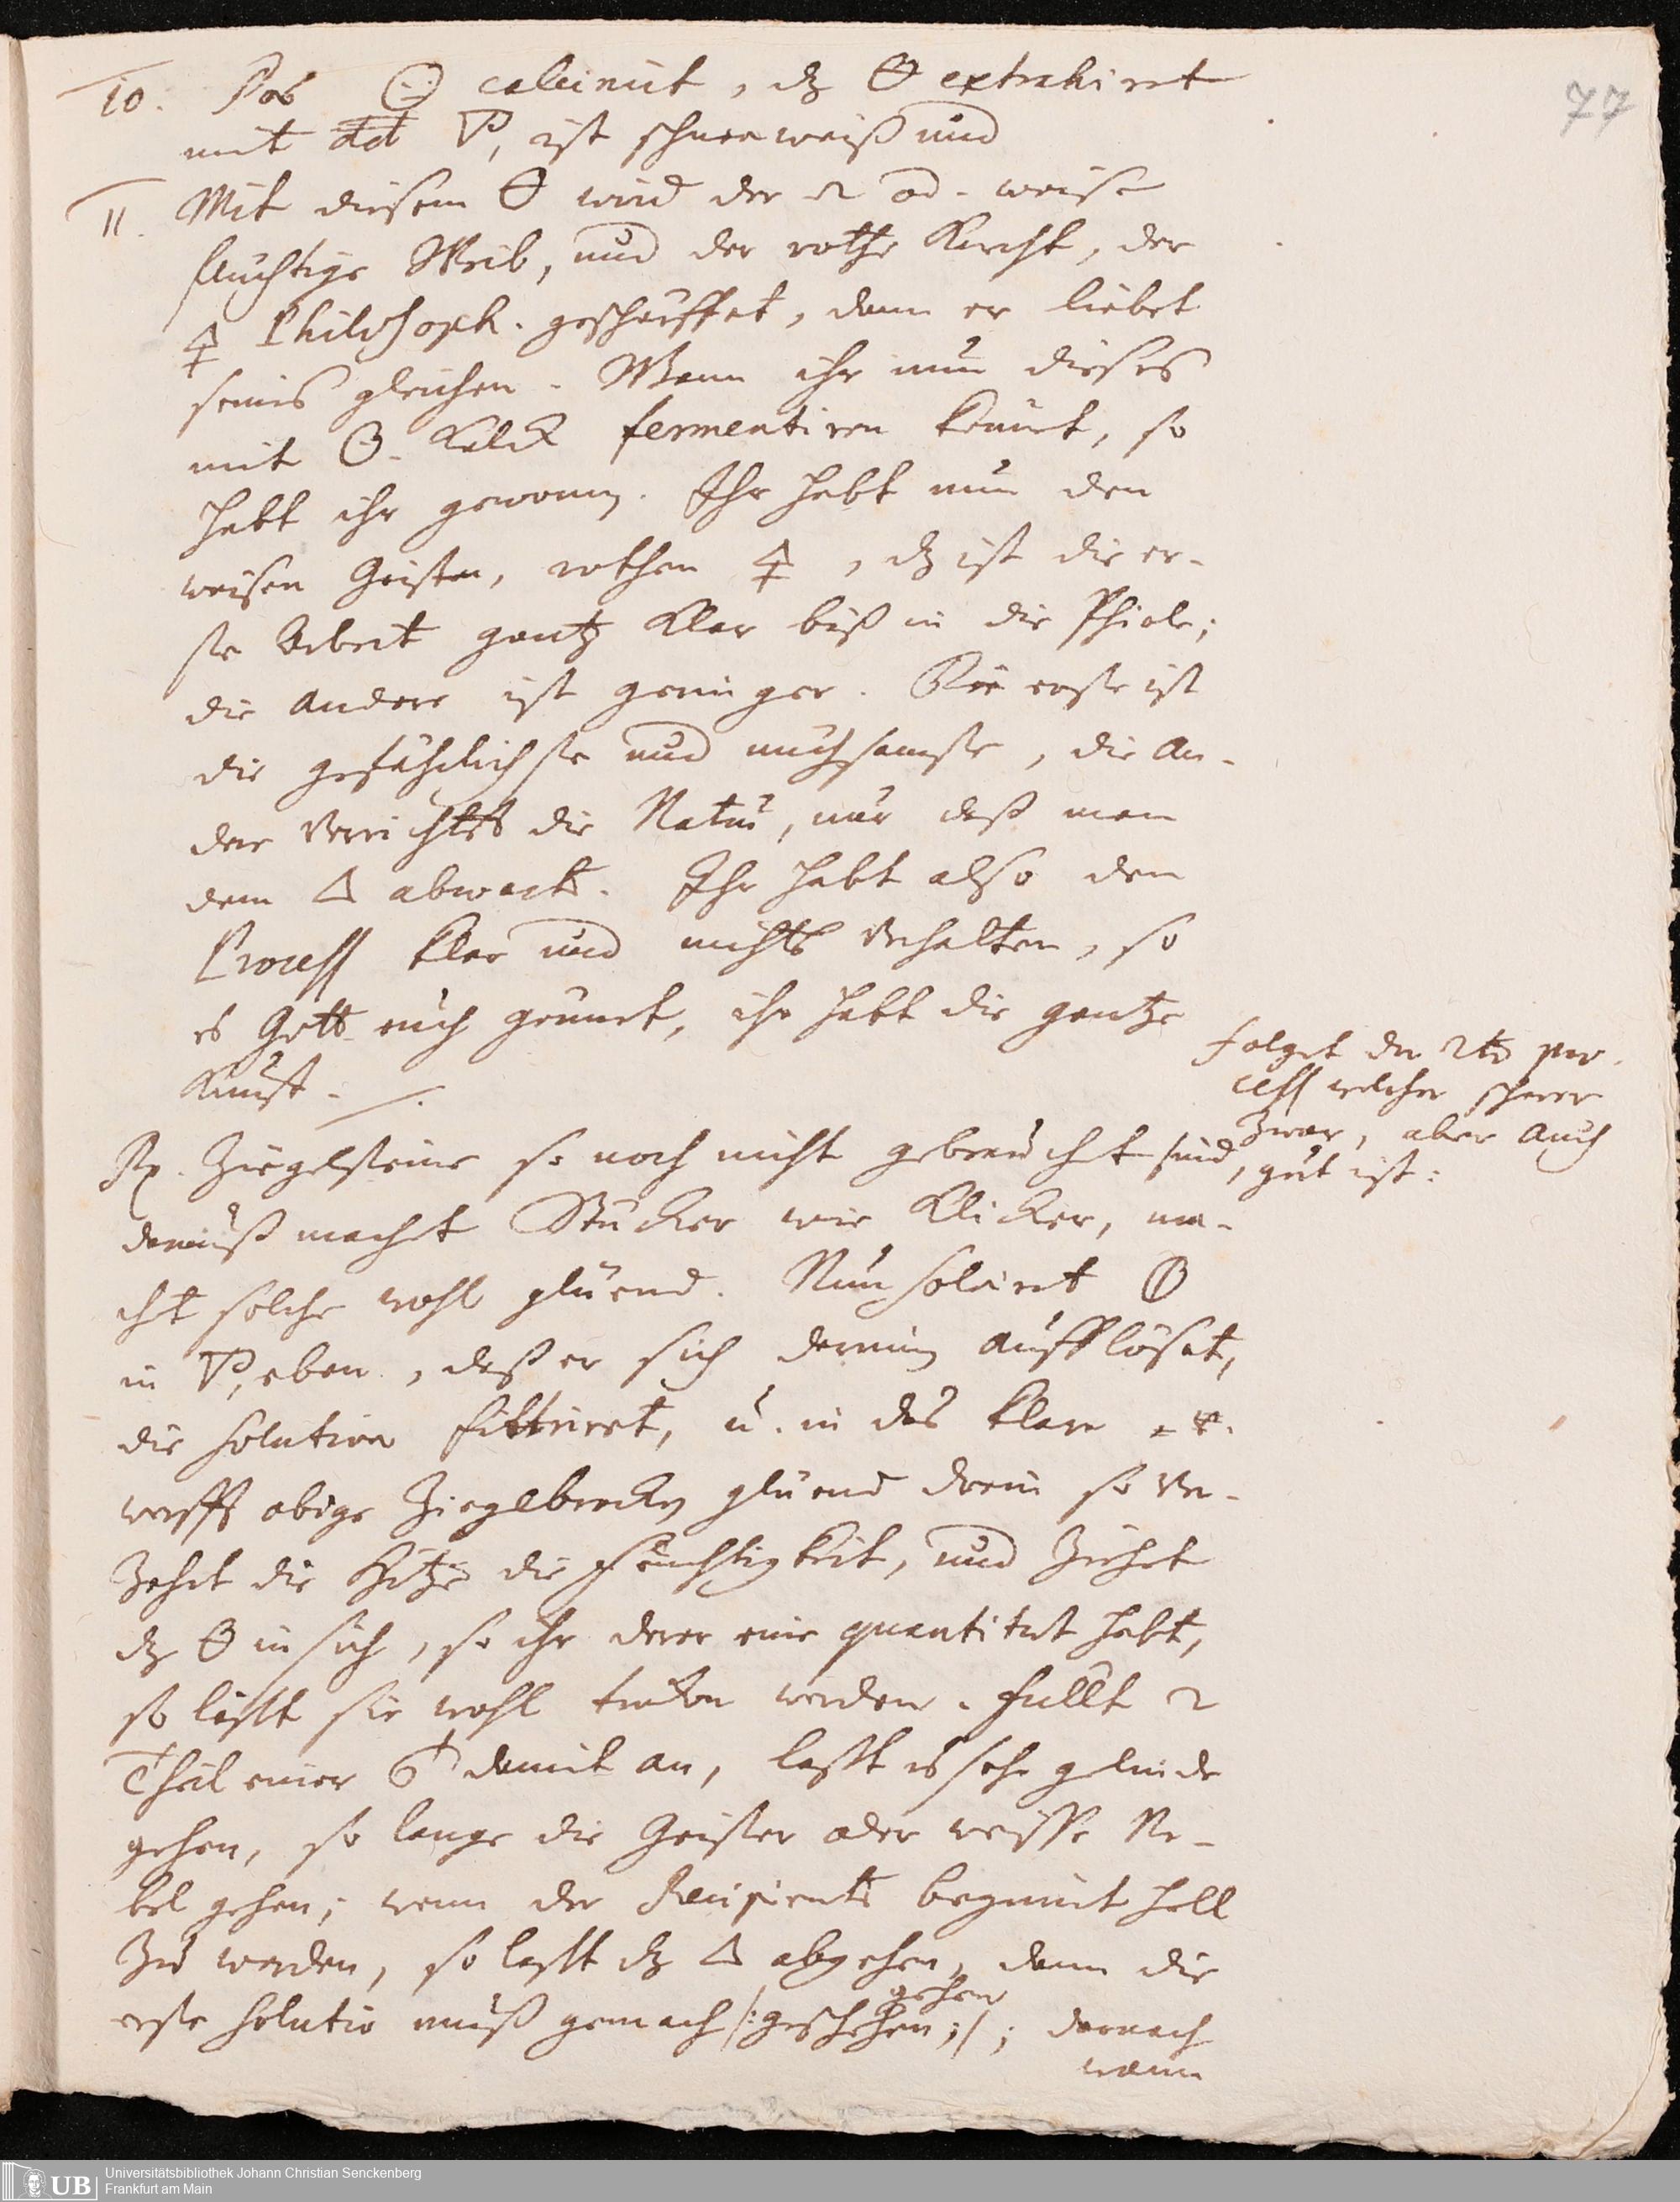 77
10. Das ☉ calcinirt, dz 🜔 extrahiret
mit dest. 🜄, ist schneeweiß und
11. Mit diesem 🜔 wird der 2 od. weise
fluchtige Weib, und der rothe Knecht, der
🜍 Philosoph. geschärffet, dann er liebet
seines gleichen. Wann ihr nun dieses
mit Kalck fermentiren könnet, so
habt ihr gewonnen. Ihr habt nun den
weisen Geist, rothen 🜍, dz ist die er-
ste Arbeit gantz klar biß in die Phiole;
die andere ist geringer. Die erste ist
die gefährlichste und mühsamste, die an-
der verrichtet die Natur, nur daß man
dem 🜂 abwart. Ihr habt also den
Process klar und nichts verhalten, so
es Gott euch gönnet, ihr habt die gantze
Kunst. /.
folget der 2te pro-
cess welcher schwer
zwar, aber auch
gut ist:
Rx. Ziegelsteine so noch nicht gebraucht sind,
darauß machet Stücker wie Klicker, ma-
cht solche wohl glüend. Nun solviret
in 🜄, eben, daß er sich darinn aufflöset,
die solution filtriret, u. in das klare
werfft obige Ziegelbrocken glüend drein so ver-
zehrt die Hitze die Feuchtigkeit, und ziehet
dz 🜔 in sich, so ihr derer eine quantitet habt,
so lasst sie wohl trucken werden. füllt 2
Theil einer damit an, lasst es sehr gelinde
gehen, so lange die Geister oder weisse Ne-
bel gehen; wenn der Recipient beginnt hell
zu werden, so lasst dz 🜂 abgehen, dann die
gehen
erste solutio muß gemach /: geschehen ;/ ; darnach
wann
Universitätsbibliothek Johann Christian Senckenberg
Frankfurt am Main
UB